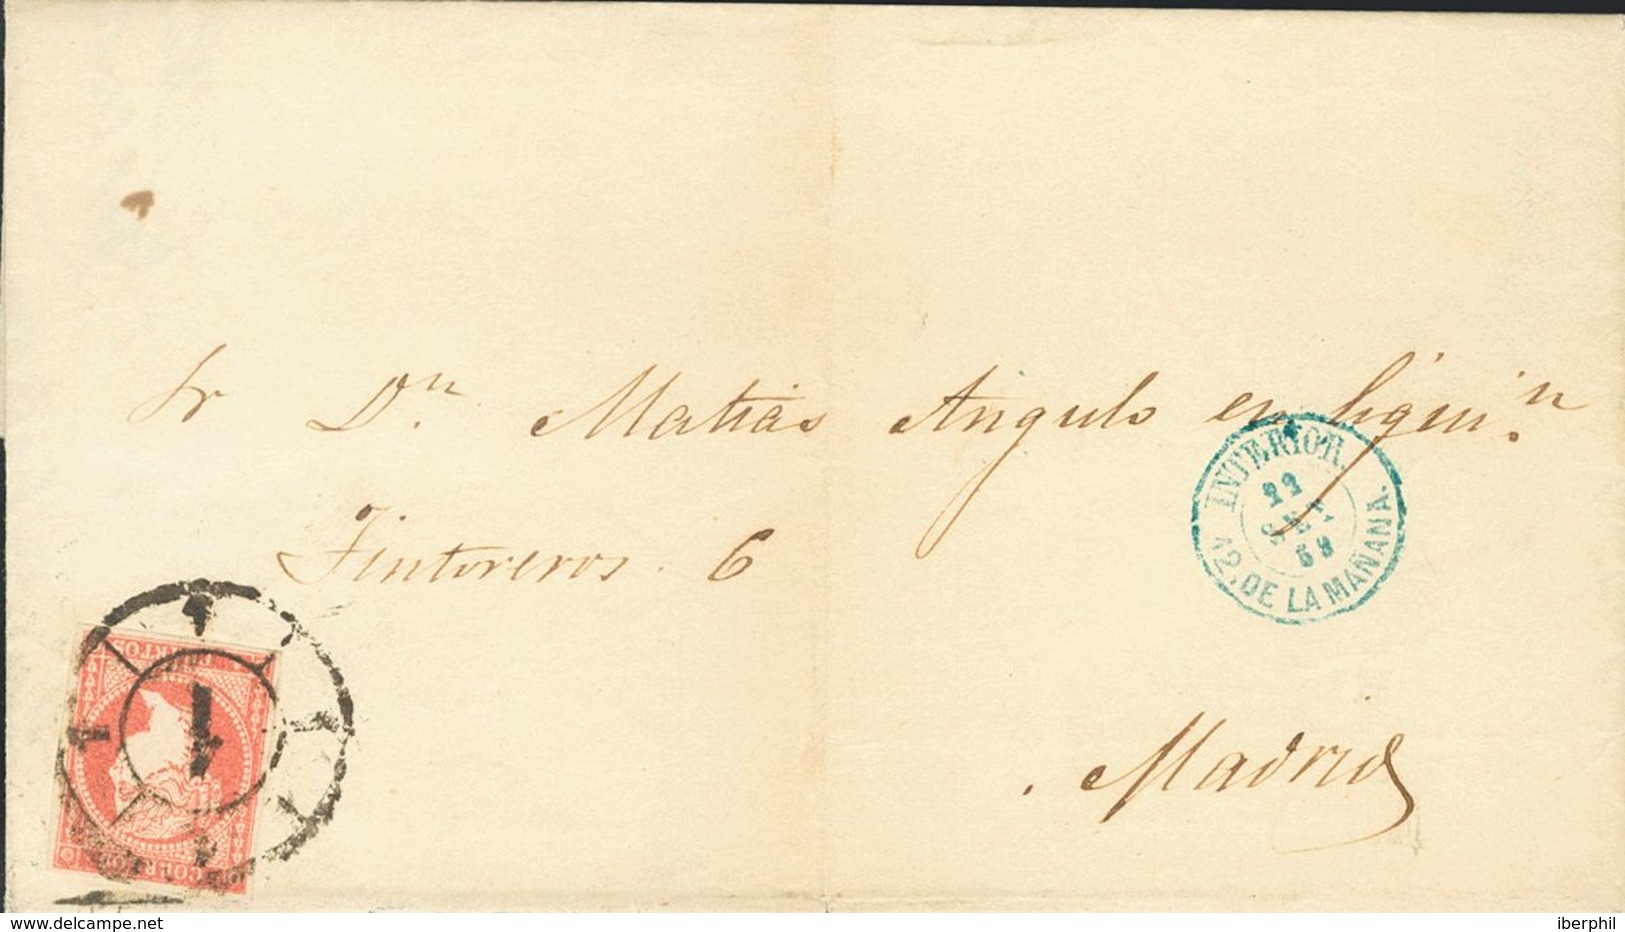 Sr Dn. Matias Angulo en liquin.
Tintoreros 6
Madrid
INTERIOR.
22
SET.
58
12, DE LA MAÑANA.
CUARTOS
CORREOS
1
1
1
1
1
1
1
delcampe.net
iberphil